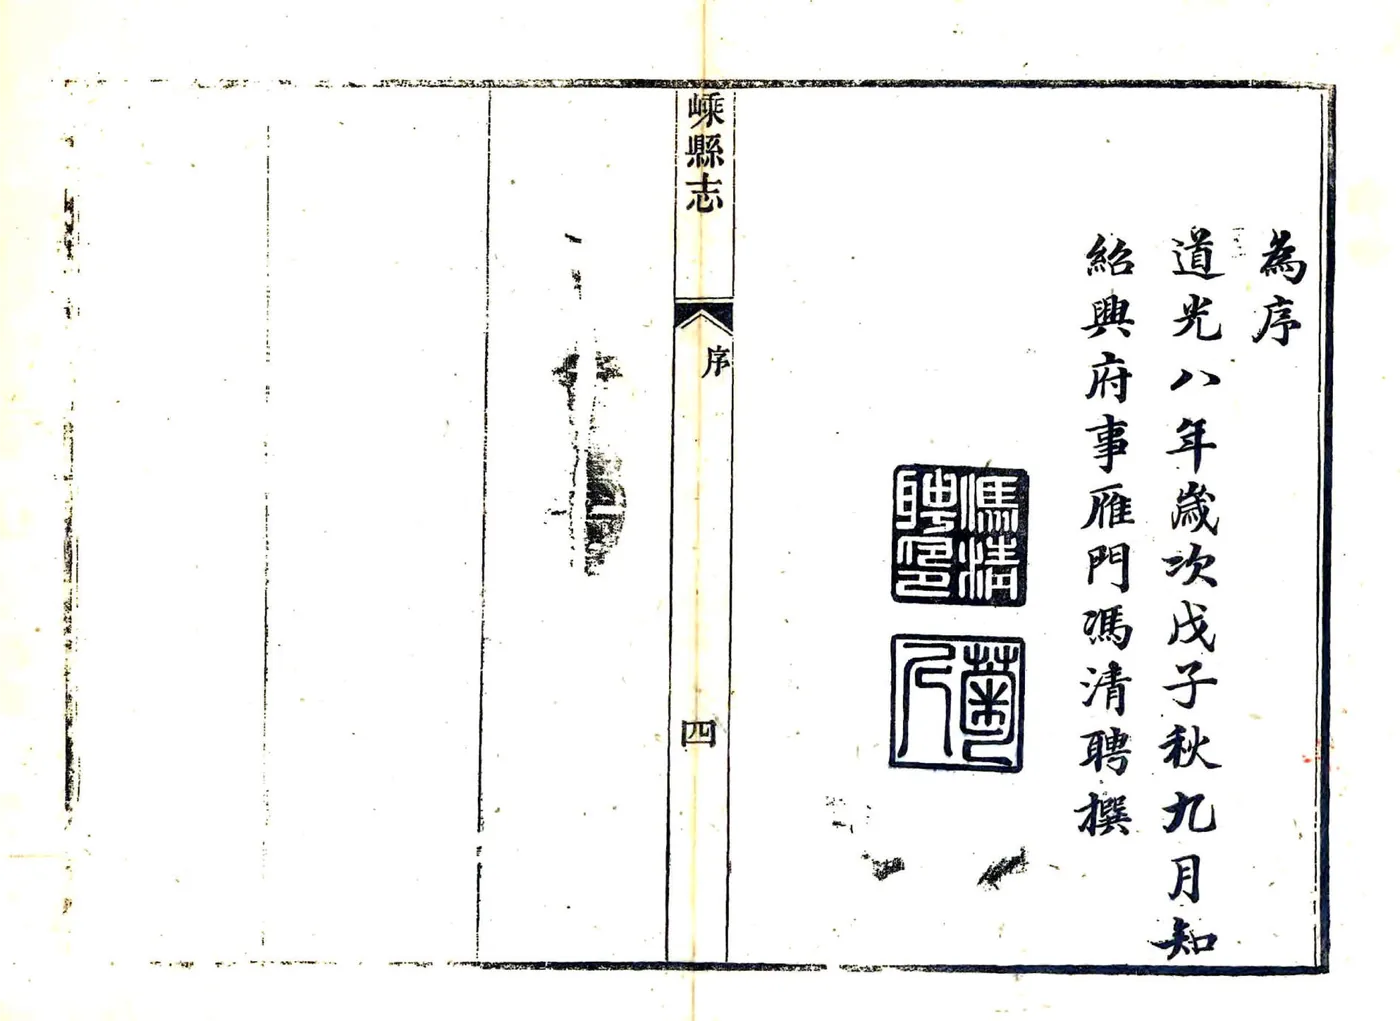 為序
道光八年歲次戊子秋九月知
紹興府事雁門馮清聘撰
馮清聘印
菊人
嵊縣志
序
四